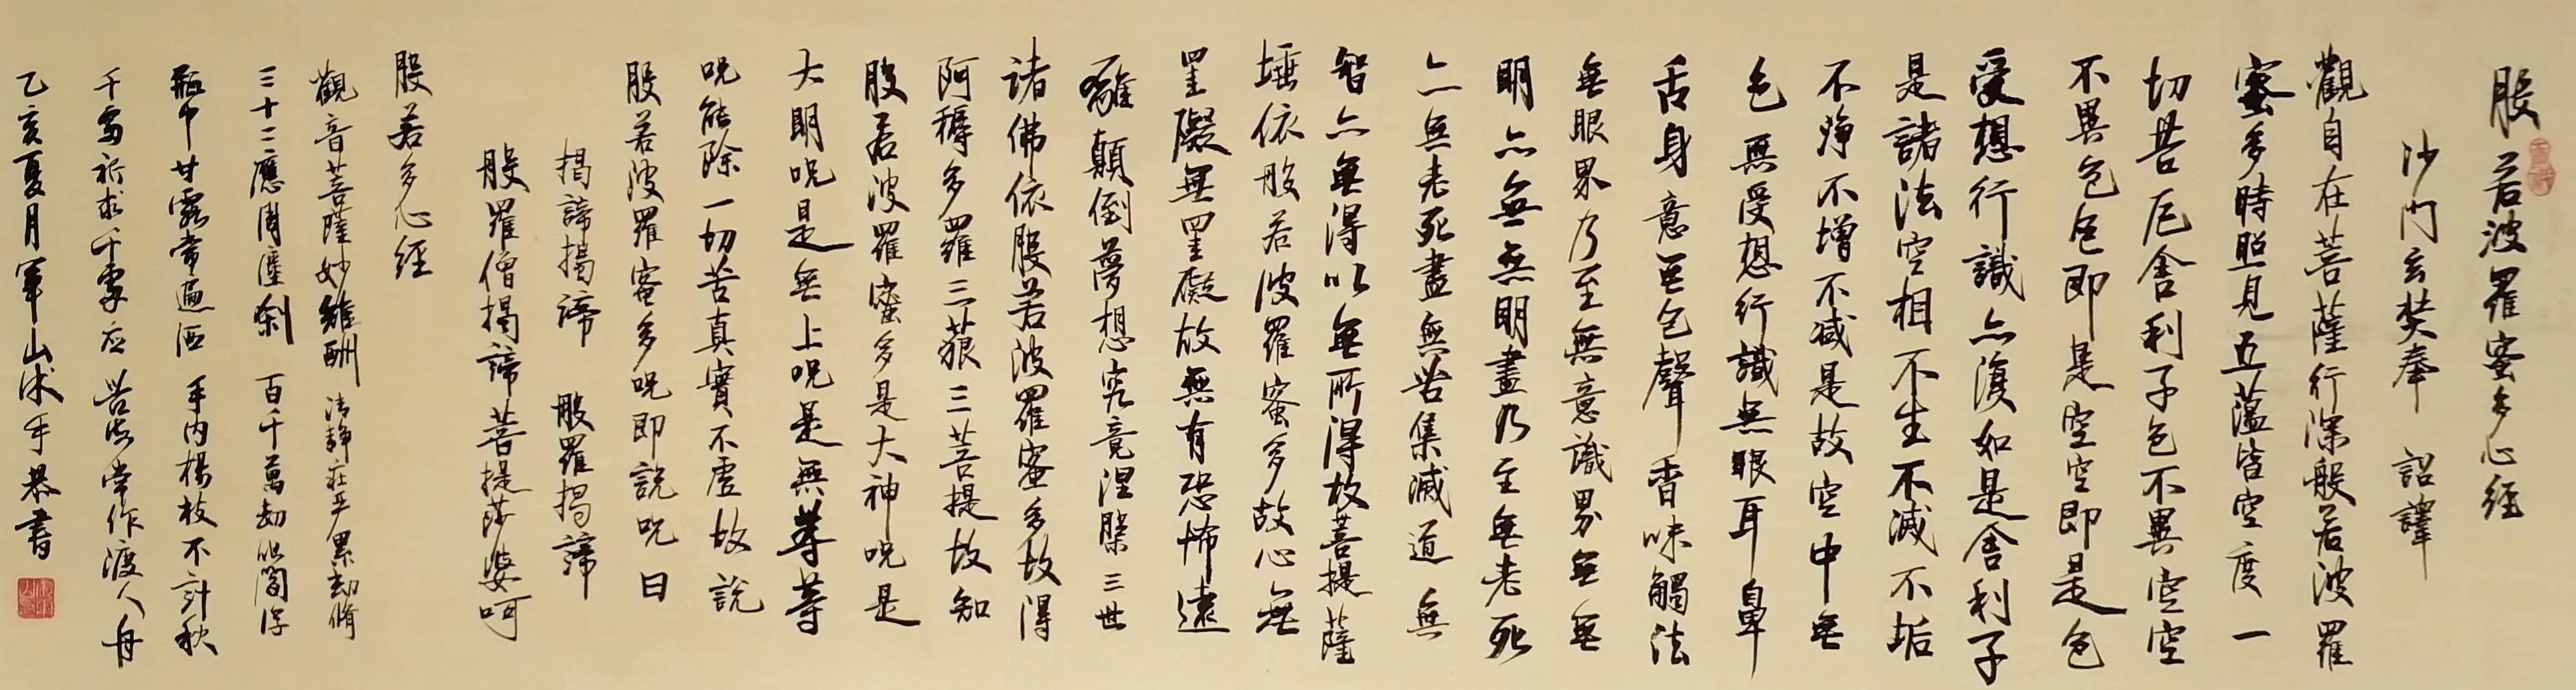 般若波羅蜜多心經
沙門玄奘奉 詔譯
觀自在菩薩行深般若波羅
蜜多時照見五蘊皆空度一
切苦厄舍利子色不異空空
不異色色即是空空即是色
受想行識亦復如是舍利子
是諸法空相不生不滅不垢
不淨不增不減是故空中無
色無受想行識無眼耳鼻
舌身意無色聲香味觸法
無眼界乃至無意識界無無
明亦無無明盡乃至無老死
亦無老死盡無苦集滅道無
智亦無得以無所得故菩提薩
埵依般若波羅蜜多故心無
罣礙無罣礙故無有恐怖遠
離顛倒夢想究竟涅槃三世
諸佛依般若波羅蜜多故得
阿耨多羅三藐三菩提故知
般若波羅蜜多是大神咒是
大明咒是無上咒是無等等
咒能除一切苦真實不虛故說
般若波羅蜜多咒即說咒曰
揭諦揭諦 般羅揭諦
般羅僧揭諦菩提莎婆呵
般若多心經
觀音菩薩妙難酬 清靜莊嚴累劫脩
三十二應周塵剎 百千萬劫化閻浮
瓶中甘露常遍洒 手內楊枝不計秋
千處祈求千處應 苦海常作渡人舟
乙亥夏月軍山沐手恭書